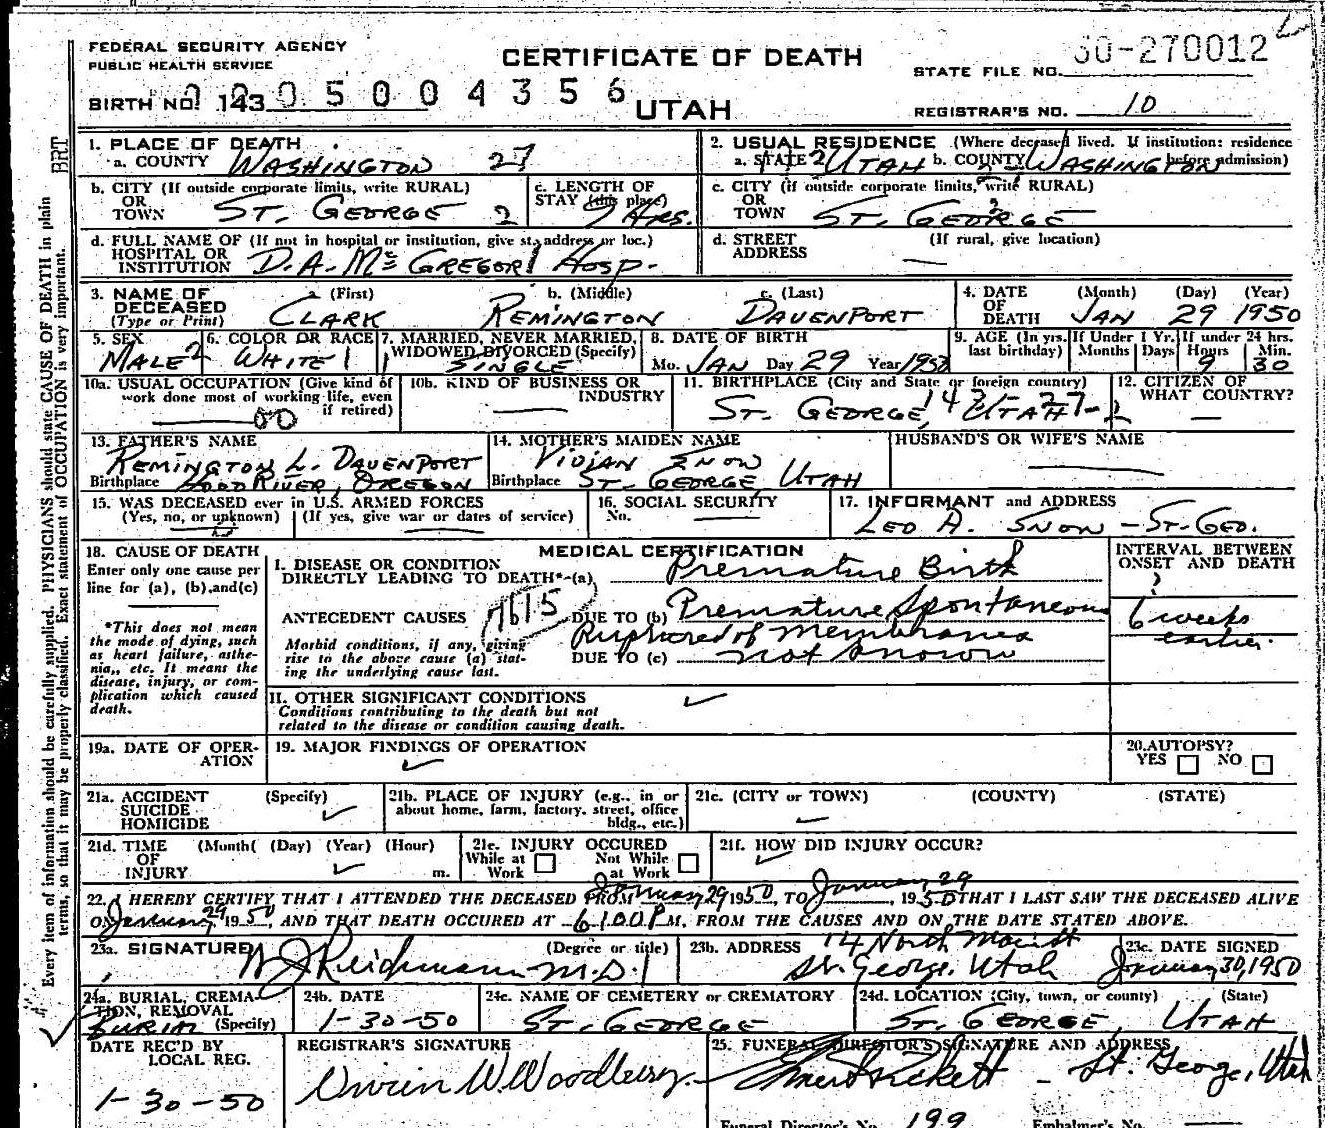 FEDERAL SECURITY AGENCY
PUBLIC HEALTH SERVICE
CERTIFICATE OF DEATH
UTAH
STATE FILE NO. 50-270012
BIRTH NO. 143 05004356
REGISTRAR'S NO. 10
BRT
Every item of information should be carefully supplied. PHYSICIANS should state CAUSE OF DEATH in plain
terms, so that it may be properly classified. Exact statement of OCCUPATION is very important.
1. PLACE OF DEATH
a. COUNTY WASHINGTON 27
2. USUAL RESIDENCE (Where deceased lived. If institution: residence
before admission)
a. STATE UTAH b. COUNTY WASHINGTON
b. CITY (If outside corporate limits, write RURAL)
OR
TOWN ST. GEORGE 2
c. LENGTH OF
STAY (this place) 9 Hrs.
c. CITY (if outside corporate limits, write RURAL)
OR
TOWN ST. GEORGE
d. FULL NAME OF (If not in hospital or institution, give st. address or loc.)
HOSPITAL OR
INSTITUTION D. A. McGREGOR HOSP.
d. STREET (If rural, give location)
ADDRESS —
3. NAME OF DECEASED
(Type or Print)
a (First) b. (Middle) c. (Last)
CLARK REMINGTON DAVENPORT
4. DATE OF DEATH (Month) (Day) (Year)
JAN 29 1950
5. SEX
MALE 2
6. COLOR OR RACE
WHITE 1
7. MARRIED, NEVER MARRIED,
WIDOWED, DIVORCED (Specify)
1 SINGLE
8. DATE OF BIRTH
Mo. JAN Day 29 Year 1950
9. AGE (In yrs. last birthday)
If Under 1 Yr. Months Days
If under 24 hrs. Hours 9 Min. 30
10a. USUAL OCCUPATION (Give kind of
work done most of working life, even
if retired)
— 00
10b. KIND OF BUSINESS OR
INDUSTRY
—
11. BIRTHPLACE (City and State or foreign country)
ST. GEORGE, UTAH
12. CITIZEN OF
WHAT COUNTRY?
—
13. FATHER'S NAME
REMINGTON L. DAVENPORT
Birthplace HOOD RIVER, OREGON
14. MOTHER'S MAIDEN NAME
VIVIAN SNOW
Birthplace ST. GEORGE, UTAH
HUSBAND'S OR WIFE'S NAME
—
15. WAS DECEASED ever in U.S. ARMED FORCES
(Yes, no, or unknown) (If yes, give war or dates of service)
16. SOCIAL SECURITY
No. —
17. INFORMANT and ADDRESS
LEO A. SNOW — ST. GEO.
18. CAUSE OF DEATH
Enter only one cause per
line for (a), (b), and (c)
*This does not mean
the mode of dying, such
as heart failure, asthe-
nia,, etc. It means the
disease, injury, or com-
plication which caused
death.
MEDICAL CERTIFICATION
INTERVAL BETWEEN
ONSET AND DEATH
I. DISEASE OR CONDITION
DIRECTLY LEADING TO DEATH*-(a) Premature Birth ?
ANTECEDENT CAUSES 7615 DUE TO (b) Premature Spontaneous 6 weeks
Ruptured of Membranes earlier.
Morbid conditions, if any, giving
rise to the above cause (a) stat-
ing the underlying cause last.
DUE TO (c) not known
II. OTHER SIGNIFICANT CONDITIONS
Conditions contributing to the death but not
related to the disease or condition causing death.
19a. DATE OF OPER-
ATION
19. MAJOR FINDINGS OF OPERATION
20. AUTOPSY?
YES NO
21a. ACCIDENT (Specify)
SUICIDE
HOMICIDE
21b. PLACE OF INJURY (e.g., in or
about home, farm, factory, street, office
bldg., etc.)
21c. (CITY or TOWN) (COUNTY) (STATE)
21d. TIME (Month( (Day) (Year) (Hour)
OF
INJURY m.
21e. INJURY OCCURED
While at Work Not While at Work
21f. HOW DID INJURY OCCUR?
22. I HEREBY CERTIFY THAT I ATTENDED THE DECEASED FROM January 29 1950, TO January 29, 1950 THAT I LAST SAW THE DECEASED ALIVE
ON January 29 1950, AND THAT DEATH OCCURED AT 6:00 P M, FROM THE CAUSES AND ON THE DATE STATED ABOVE.
23a. SIGNATURE (Degree or title)
W J Reichmann M.D.
23b. ADDRESS 14 North Main St
St. George, Utah
23c. DATE SIGNED
January 30, 1950
24a. BURIAL, CREMA-
TION, REMOVAL
(Specify) BURIAL
24b. DATE
1-30-50
24c. NAME OF CEMETERY or CREMATORY
ST. GEORGE
24d. LOCATION (City, town, or county) (State)
ST. GEORGE, UTAH
DATE REC'D BY
LOCAL REG.
1-30-50
REGISTRAR'S SIGNATURE
W. Woodbury
25. FUNERAL DIRECTOR'S SIGNATURE AND ADDRESS
Pickett — St. George, Utah
Funeral Director's No. 199 Embalmer's No.